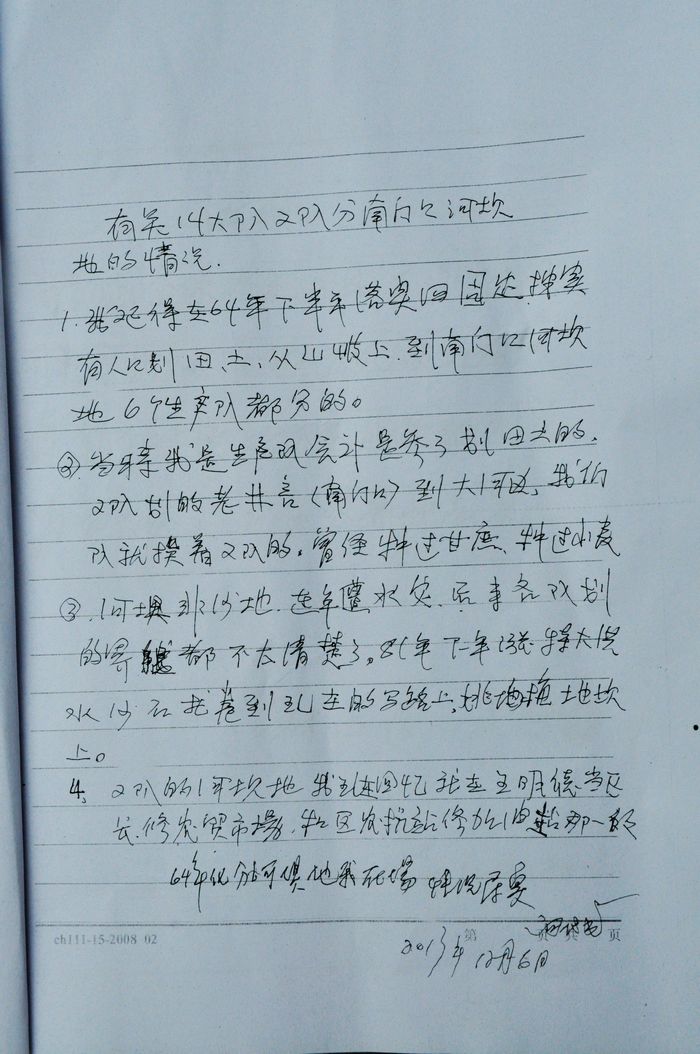 有关14大队2队分南门口河坎
地的情况.
1.我记得在64年下半年落实四固定.按实
有人口划田、土、从山坡上.到南门口河坎
地6个生产队都分的。
②.当时我是生产队会计是参予划田土的.
2队划的老井言(南门口)到大河边,我们
队就挨着2队的。曾经种过甘庶、种过小麦
③.河坝非沙地.连年遭水灾.后来各队划
的界都不太清楚了。81年下年涨特大洪
水沙石
在的马路上,
地坎
上。
4、2队的河坎地
回忆就在王明德当区
长.修农贸市场.和区农机站修加油站那一段
64年
情况属实
ch111-15-2008 02 第 页 共 页
2013年12月6日